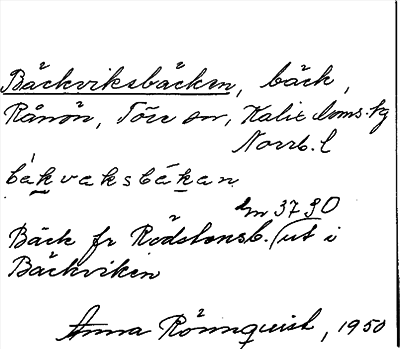 Bäckviksbäcken, bäck,
Rånön, Töre sn, Kalix doms. hg
Norrb. l
bákvaksbäkan
3790
Bäck fr Rödstensb. (ut i
Bäckviken
Anna Rönnquist, 1950